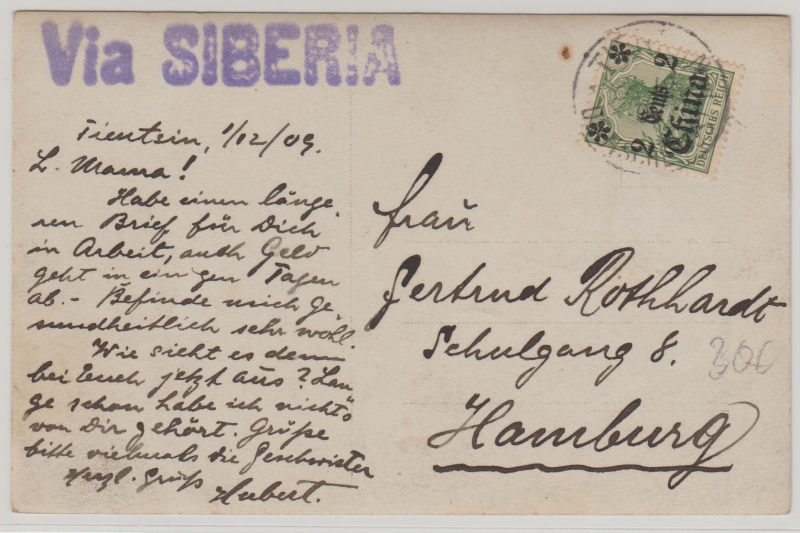 Via SIBERIA
2 Cents 2
China
DEUTSCHES REICH
Tientsin, 1/12/09.
L. Mama!
Habe einen länge
ren Brief für Dich
in Arbeit, auch Geld
geht in einigen Tagen
ab. - Befinde mich ge
sundheitlich sehr wohl.
Wie sieht es denn
bei Euch jetzt aus? Lan
ge schon habe ich nichts
von Dir gehört. Grüße
bitte vielmals die Geschwister
Herzl. Gruß
Hubert.
Frau
Gertrud Rothhardt
Schulgang 8.
Hamburg